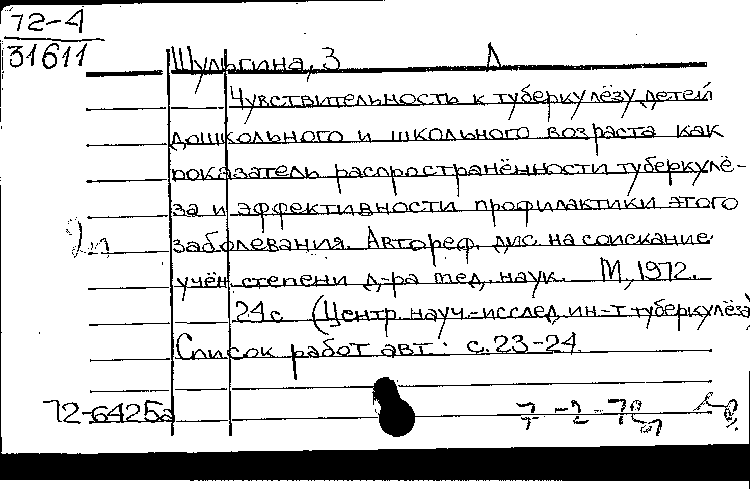 72-4
31611
Шульгина, З Л
Чувствительность к туберкулёзу детей
дошкольного и школьного возраста как
показатель распространённости туберкулё-
за и эффективности профилактики этого
2л
заболевания. Автореф. дис. на соискание
учён степени д-ра мед. наук. М, 1972.
24с (Центр. науч.-исслед. ин-т туберкулёза)
Список работ авт.: с.23-24
72-6425а